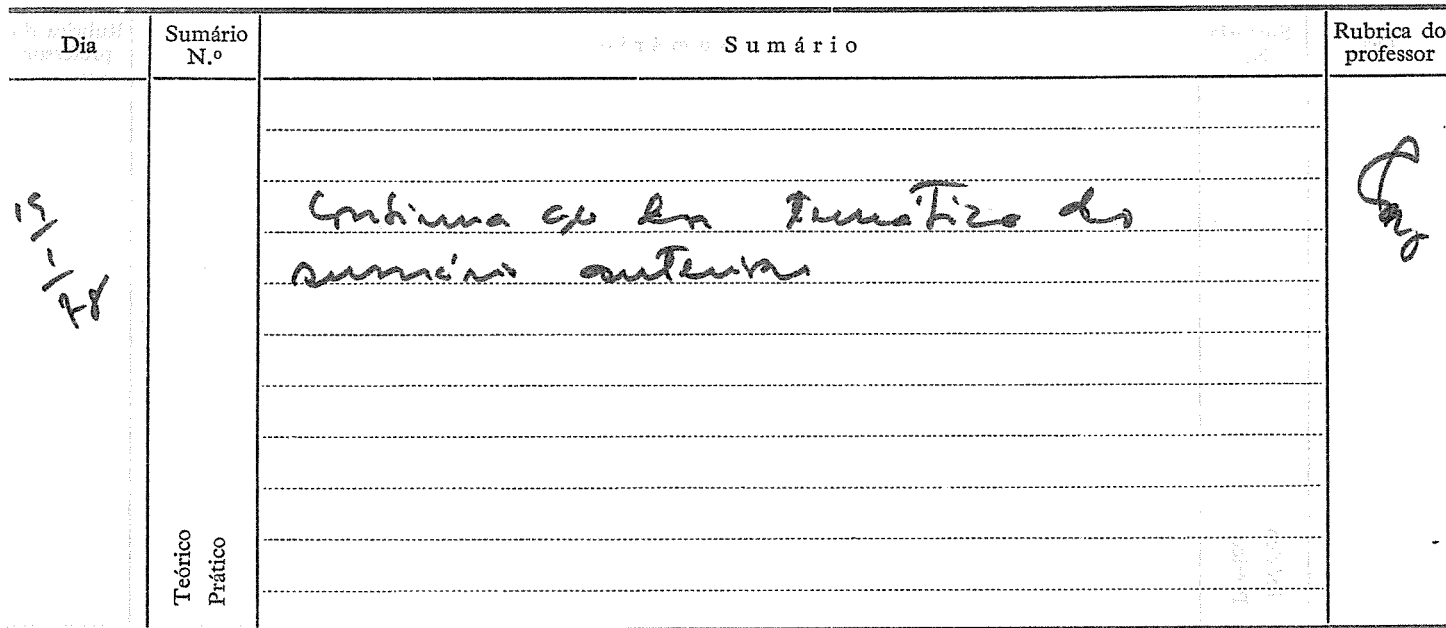 Dia
Sumário
N.º
Sumário
Rubrica do
professor
19/1/78
Continua ção da temática do
sumário anterior
Teórico
Prático